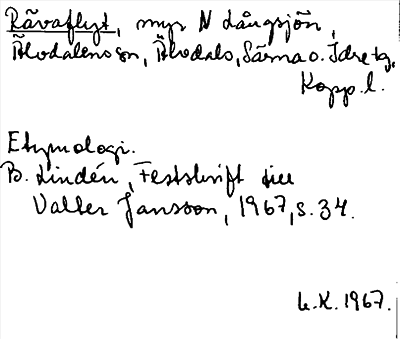 Rävaflyt, myr N Långsjön,
Älvdalens sn, Älvdals, Särna o. Idre tg,
Kopp. l.
Etymologi.
B. Lindén, Festskrift till
Valter Jansson, 1967, s. 34.
L.K. 1967.